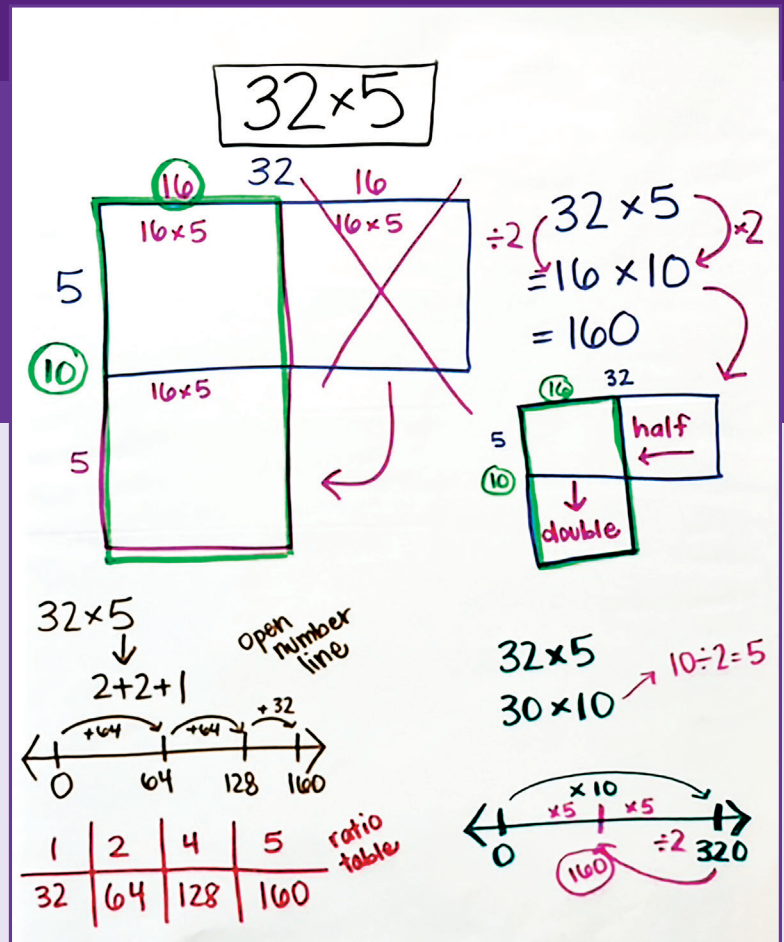 32×5
16
32
16
16×5
16×5
5
10
16×5
5
÷2
32×5
×2
=16×10
=160
16
32
5
half
10
double
32×5
2+2+1
open
number
line
+64
+64
+32
0
64
128
160
1
2
4
5
32
64
128
160
ratio
table
32×5
30×10
10÷2=5
×10
×5
×5
÷2
0
160
320